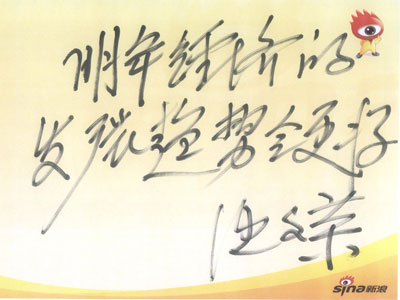 明年经济的
发展趋势会更好
sina新浪